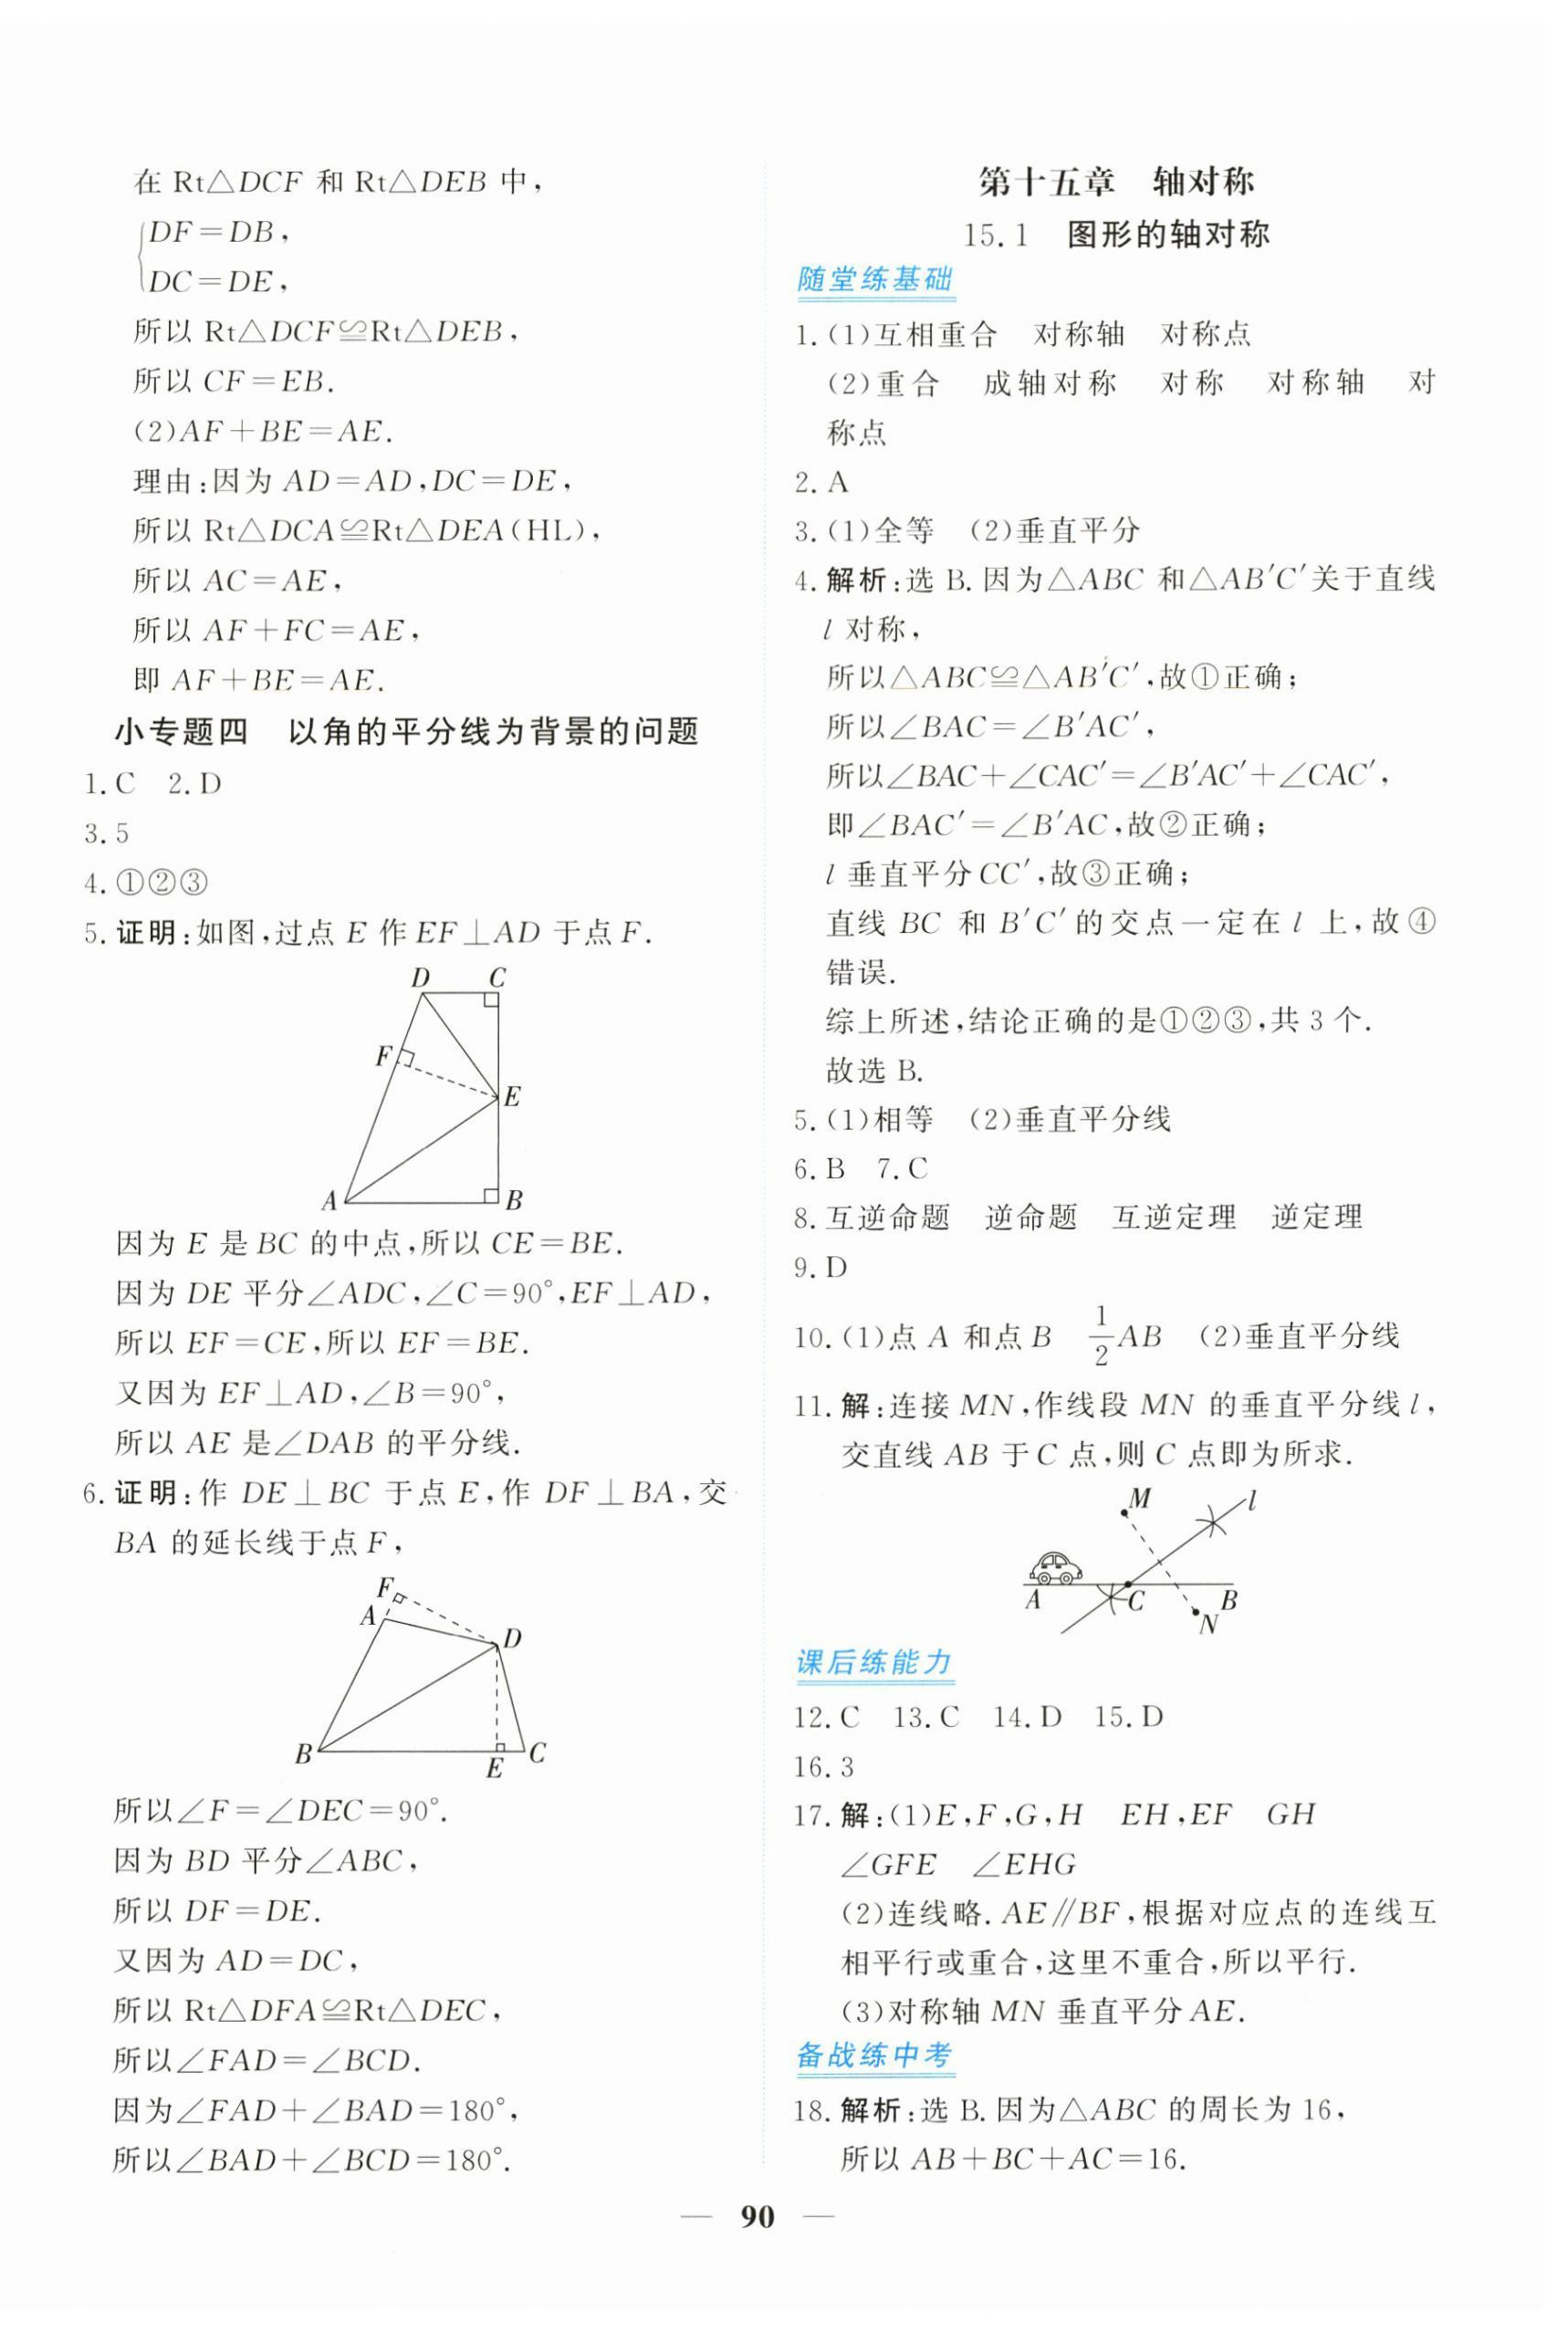 在 Rt△DCF 和 Rt△DEB 中，
DF=DB，
DC=DE，
所以 Rt△DCF≌Rt△DEB，
所以 CF=EB.
(2)AF+BE=AE.
理由：因为 AD=AD，DC=DE，
所以 Rt△DCA≌Rt△DEA(HL)，
所以 AC=AE，
所以 AF+FC=AE，
即 AF+BE=AE.
小专题四　以角的平分线为背景的问题
1.C　2.D
3.5
4.①②③
5.证明：如图，过点 E 作 EF⊥AD 于点 F.
D C
F
E
A B
因为 E 是 BC 的中点，所以 CE=BE.
因为 DE 平分∠ADC，∠C=90°，EF⊥AD，
所以 EF=CE，所以 EF=BE.
又因为 EF⊥AD，∠B=90°，
所以 AE 是∠DAB 的平分线.
6.证明：作 DE⊥BC 于点 E，作 DF⊥BA，交
BA 的延长线于点 F，
F
A
D
B E C
所以∠F=∠DEC=90°.
因为 BD 平分∠ABC，
所以 DF=DE.
又因为 AD=DC，
所以 Rt△DFA≌Rt△DEC，
所以∠FAD=∠BCD.
因为∠FAD+∠BAD=180°，
所以∠BAD+∠BCD=180°.
第十五章　轴对称
15.1　图形的轴对称
随堂练基础
1.(1)互相重合　对称轴　对称点
(2)重合　成轴对称　对称　对称轴　对
称点
2.A
3.(1)全等　(2)垂直平分
4.解析：选 B.因为△ABC 和△AB′C′关于直线
l 对称，
所以△ABC≌△AB′C′，故①正确；
所以∠BAC=∠B′AC′，
所以∠BAC+∠CAC′=∠B′AC′+∠CAC′，
即∠BAC′=∠B′AC，故②正确；
l 垂直平分 CC′，故③正确；
直线 BC 和 B′C′的交点一定在 l 上，故④
错误.
综上所述，结论正确的是①②③，共 3 个.
故选 B.
5.(1)相等　(2)垂直平分线
6.B　7.C
8.互逆命题　逆命题　互逆定理　逆定理
9.D
10.(1)点 A 和点 B　1/2 AB　(2)垂直平分线
11.解：连接 MN，作线段 MN 的垂直平分线 l，
交直线 AB 于 C 点，则 C 点即为所求.
M l
A C B
N
课后练能力
12.C　13.C　14.D　15.D
16.3
17.解：(1)E，F，G，H　EH，EF　GH
∠GFE　∠EHG
(2)连线略.AE∥BF，根据对应点的连线互
相平行或重合，这里不重合，所以平行.
(3)对称轴 MN 垂直平分 AE.
备战练中考
18.解析：选 B.因为△ABC 的周长为 16，
所以 AB+BC+AC=16.
— 90 —